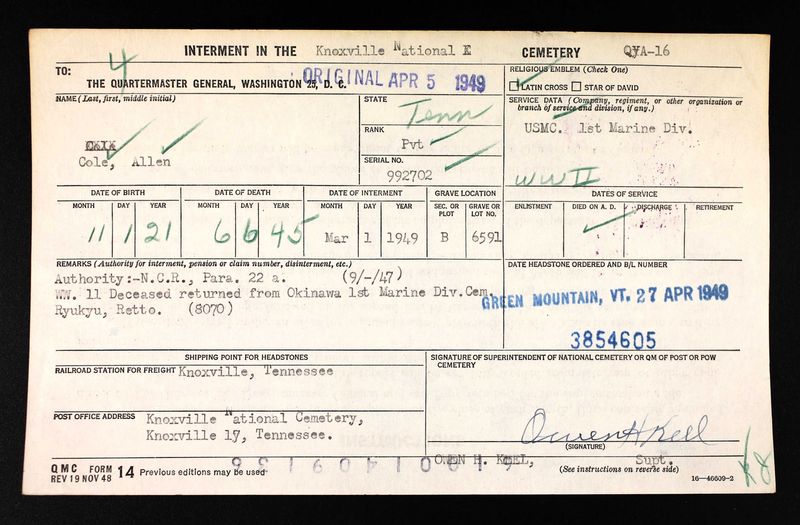 INTERMENT IN THE Knoxville National E CEMETERY QYA-16
4
TO:
THE QUARTERMASTER GENERAL, WASHINGTON 25, D. C.
ORIGINAL APR 5 1949
RELIGIOUS EMBLEM (Check One)
LATIN CROSS STAR OF DAVID
NAME (Last, first, middle initial)
Cole, Allen
STATE
Tenn
RANK
Pvt
SERIAL NO.
992702
SERVICE DATA (Company, regiment, or other organization or
branch of service and division, if any.)
USMC. 1st Marine Div.
WW II
DATE OF BIRTH DATE OF DEATH DATE OF INTERMENT GRAVE LOCATION DATES OF SERVICE
MONTH DAY YEAR MONTH DAY YEAR MONTH DAY YEAR SEC. OR PLOT GRAVE OR LOT NO. ENLISTMENT DIED ON A. D. DISCHARGE RETIREMENT
11 1 21 6 6 45 Mar 1 1949 B 6591
REMARKS (Authority for interment, pension or claim number, disinterment, etc.)
Authority:-N.C.R., Para. 22 a. (9/-/47)
WW. 11 Deceased returned from Okinawa 1st Marine Div.Cem.
Ryukyu, Retto. (8070)
DATE HEADSTONE ORDERED AND B/L NUMBER
GREEN MOUNTAIN, VT. 27 APR 1949
3854605
SHIPPING POINT FOR HEADSTONES
RAILROAD STATION FOR FREIGHT Knoxville, Tennessee
POST OFFICE ADDRESS Knoxville National Cemetery,
Knoxville 17, Tennessee.
SIGNATURE OF SUPERINTENDENT OF NATIONAL CEMETERY OR QM OF POST OR POW
CEMETERY
Owen H Keel
(SIGNATURE)
OWEN H. KEEL, Supt.
(See instructions on reverse side)
QMC FORM 14 Previous editions may be used
REV 19 NOV 48
16—46609-2